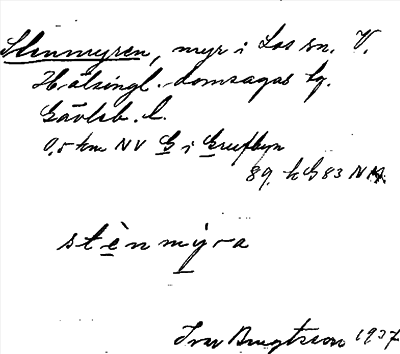 Stenmyren, myr i Los sn. V.
Hälsingl. domsagas tg.
Gävleb. l.
0,5 km NV G i Grufbyn
89. h G 83 NV.
stènmy̱ra
Ivar Bengtsson 1937